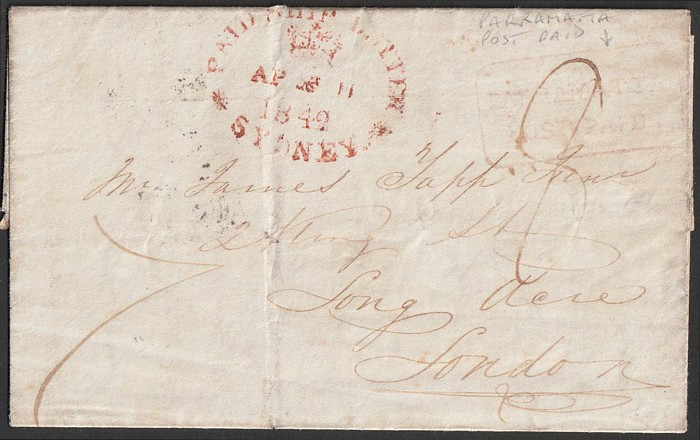 PARRAMATTA
POST PAID ↓
PAID SHIP LETTER
AP 11
1842
SYDNEY
PARRAMATTA
POST PAID
Mr James Tapp Junr
2 King St
Long Acre
London